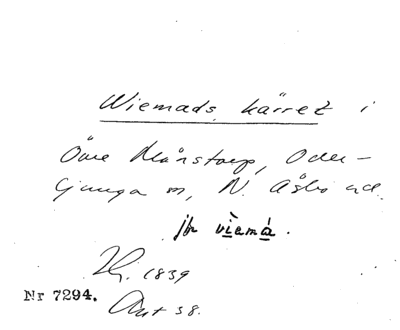 Wiemads kärret i
Övre Månstorp, Oder-
ljunga sn, N. Åsbo hd.
jfr viemå.
1839
Nr 7294. Avt 38.